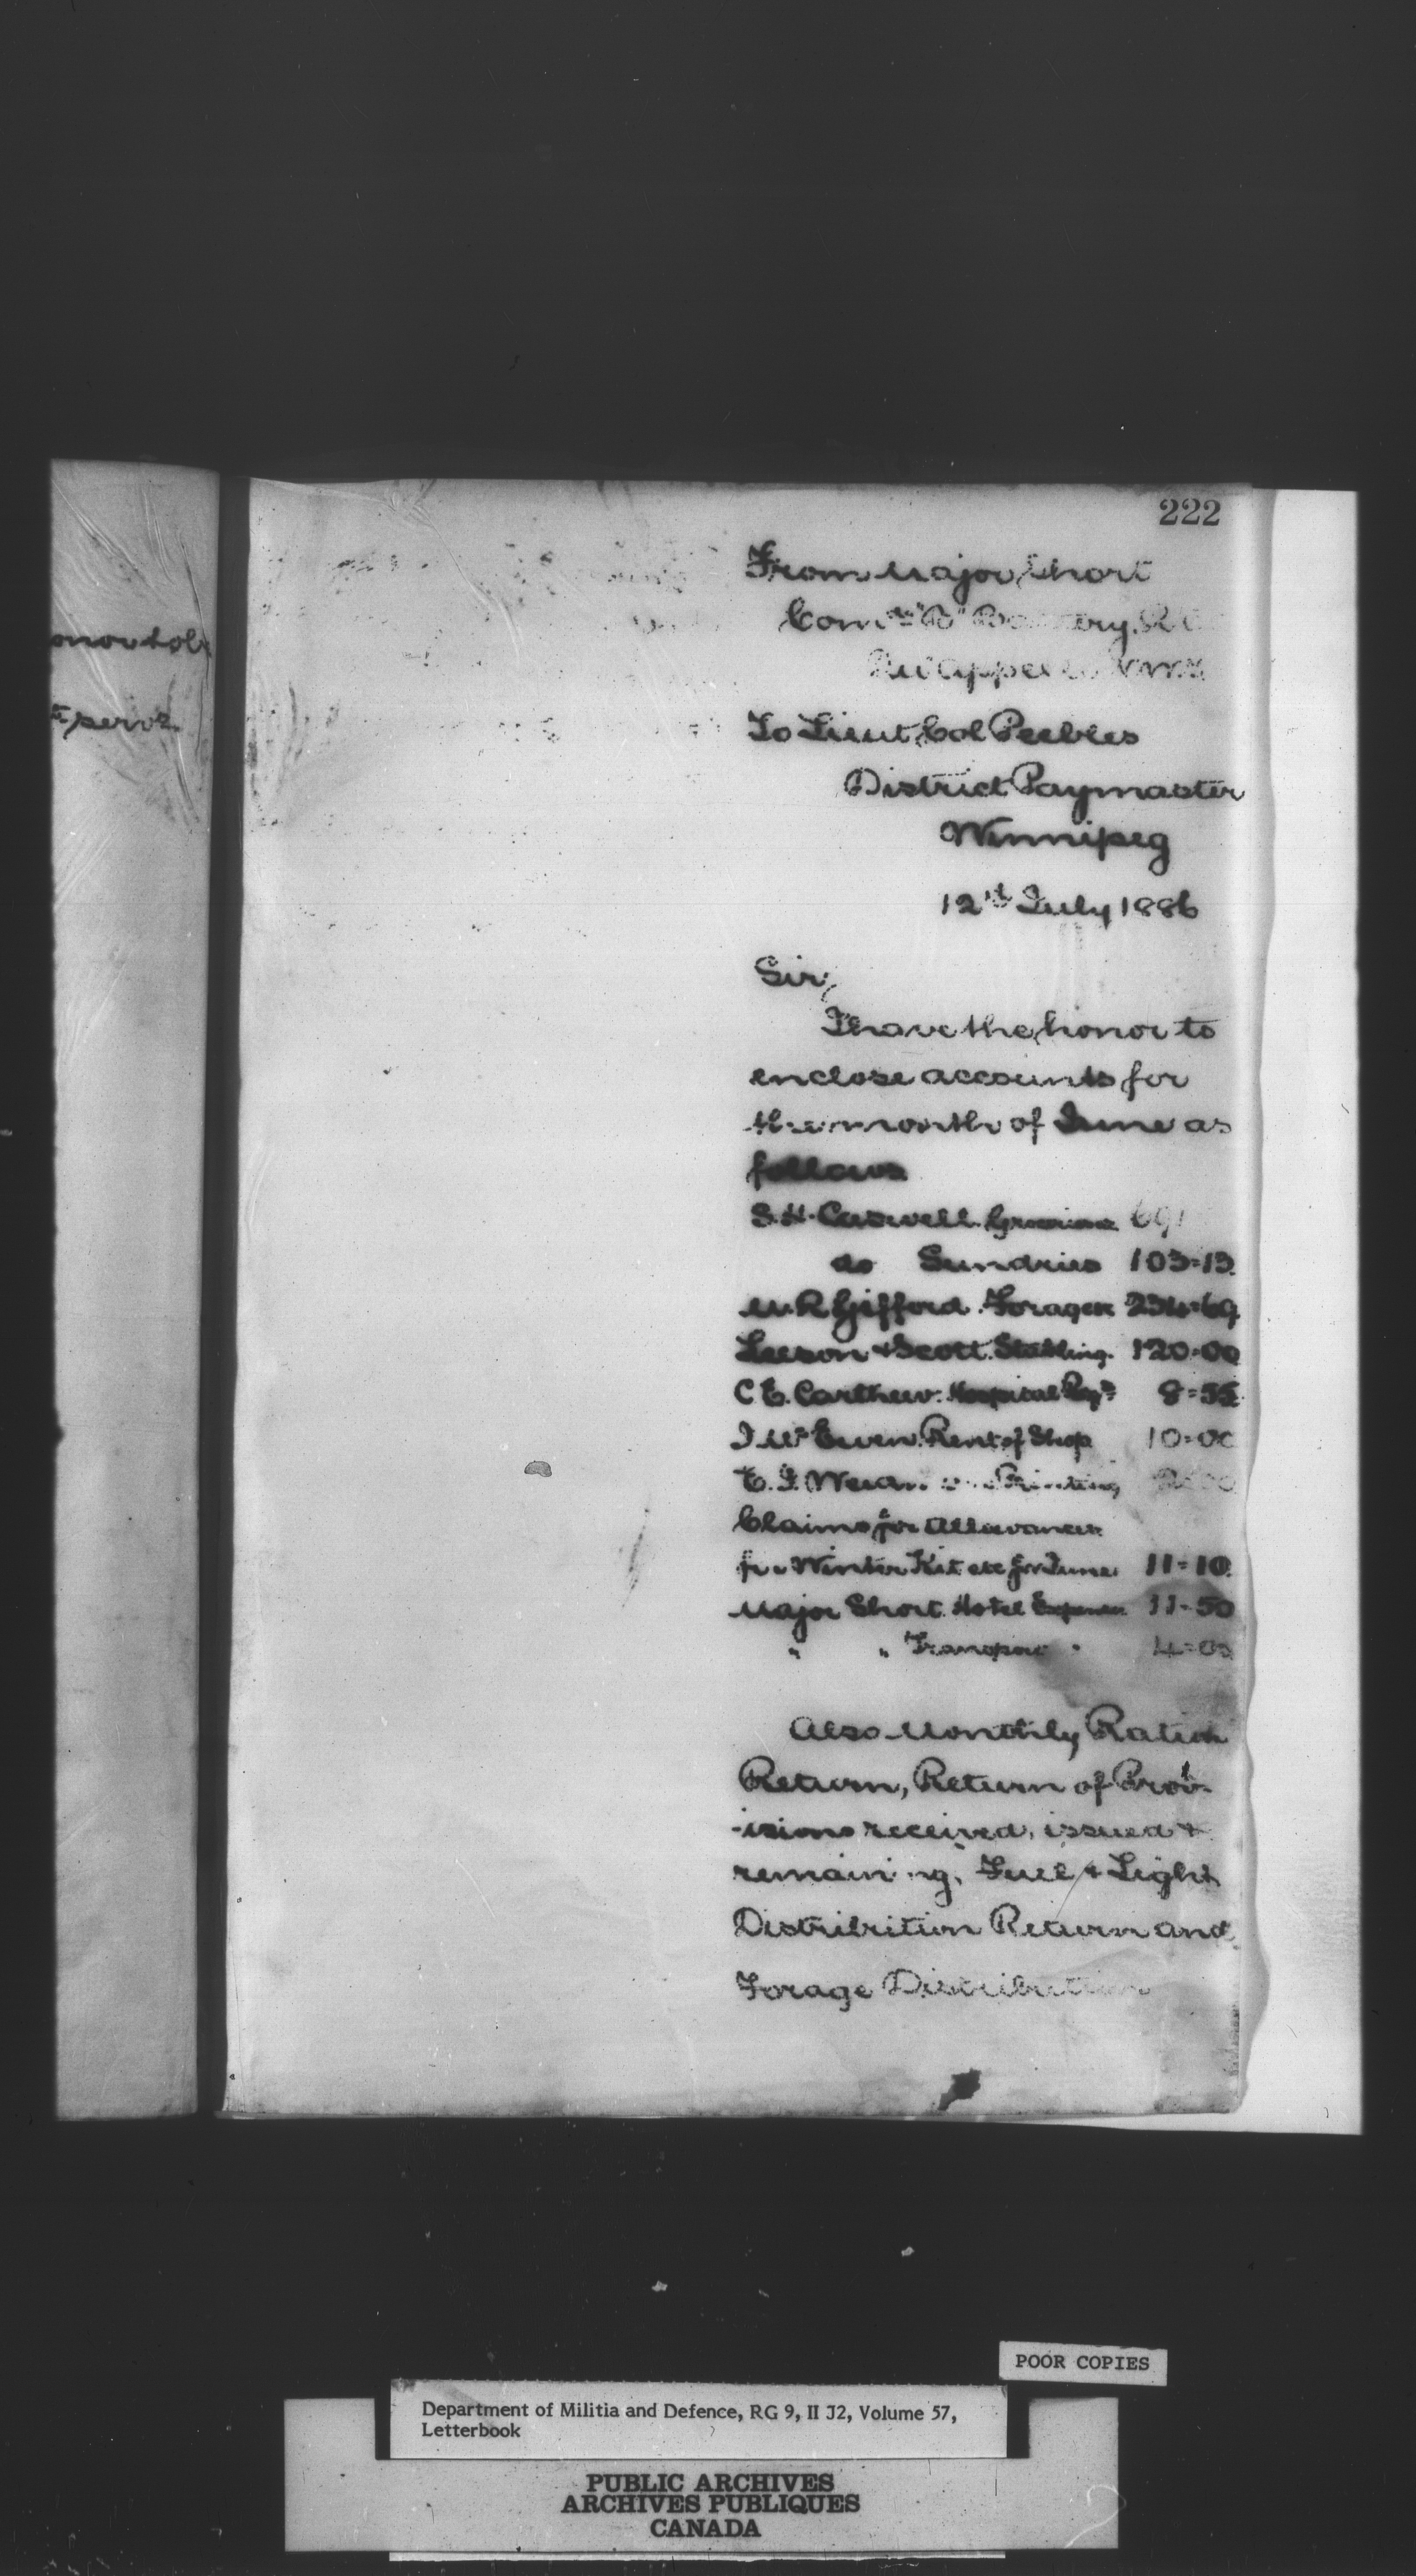 222
From Major Short
Com
To Lieut Col Peebles
District Paymaster
Winnipeg
12th July 1886
Sir,
I have the honor to
enclose accounts for
the month of June as
follows
S. H. Caswell. Groceries 691
do Sundries 103=13
Gifford. Forage 234=69
Leeson & Scott. Stabling. 120=00
C E. Carthew. Hospital 8=55
McEwen. Rent of Shop 10=00
Printing
Claims for Allowances
for Winter Kit etc for June 11=10
Major Short. Hotel Expenses 11=50
" " Transport 4=00
Also Monthly Ration
Return, Return of Prov-
-isions received, issued &
remaining, Fuel & Light
Distribution Return and
Forage Distribution
POOR COPIES
Department of Militia and Defence, RG 9, II J2, Volume 57,
Letterbook
PUBLIC ARCHIVES
ARCHIVES PUBLIQUES
CANADA